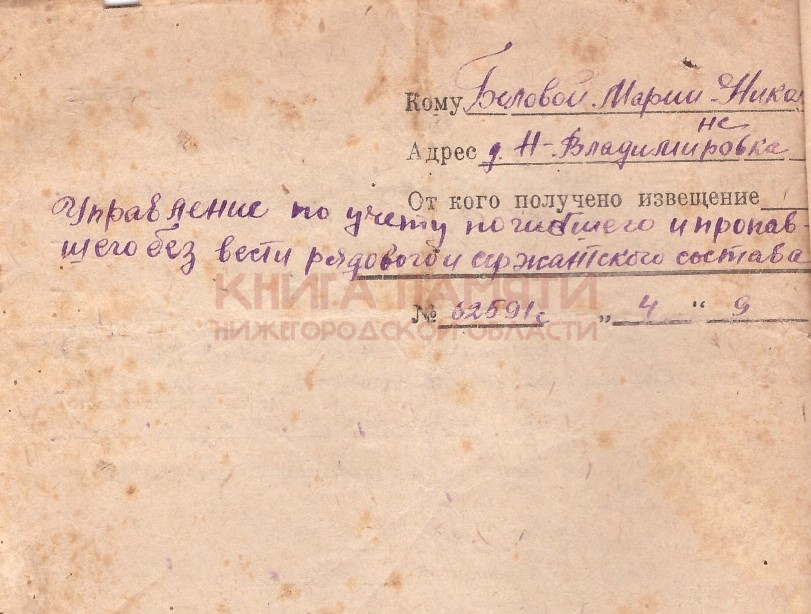 Кому Беловой Марии Никол
не
Адрес д. Н-Владимировка
От кого получено извещение
Управление по учету погибшего и пропав-
шего без вести рядового и сержантского состава
КНИГА ПАМЯТИ
НИЖЕГОРОДСКОЙ ОБЛАСТИ
№ 62591с „ 4 “ 9